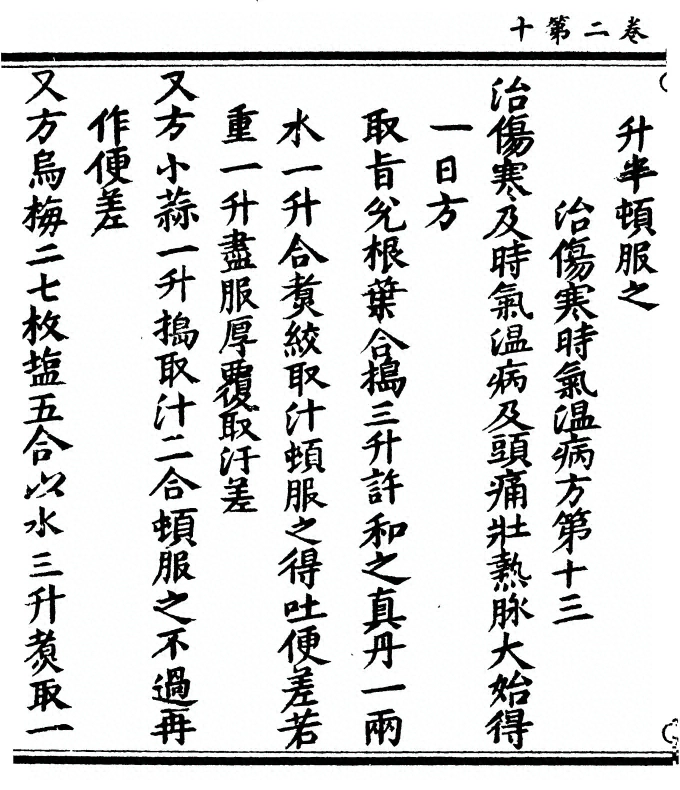 卷二第十
升半頓服之
治傷寒時氣温病方第十三
治傷寒及時氣温病及頭痛壯熱脉大始得
一日方
取旨兊根葉合搗三升許和之真丹一兩
水一升合煑絞取汁頓服之得吐便差若
重一升盡服厚覆取汗差
又方小蒜一升搗取汁二合頓服之不過再
作便差
又方烏梅二七枚塩五合以水三升煑取一